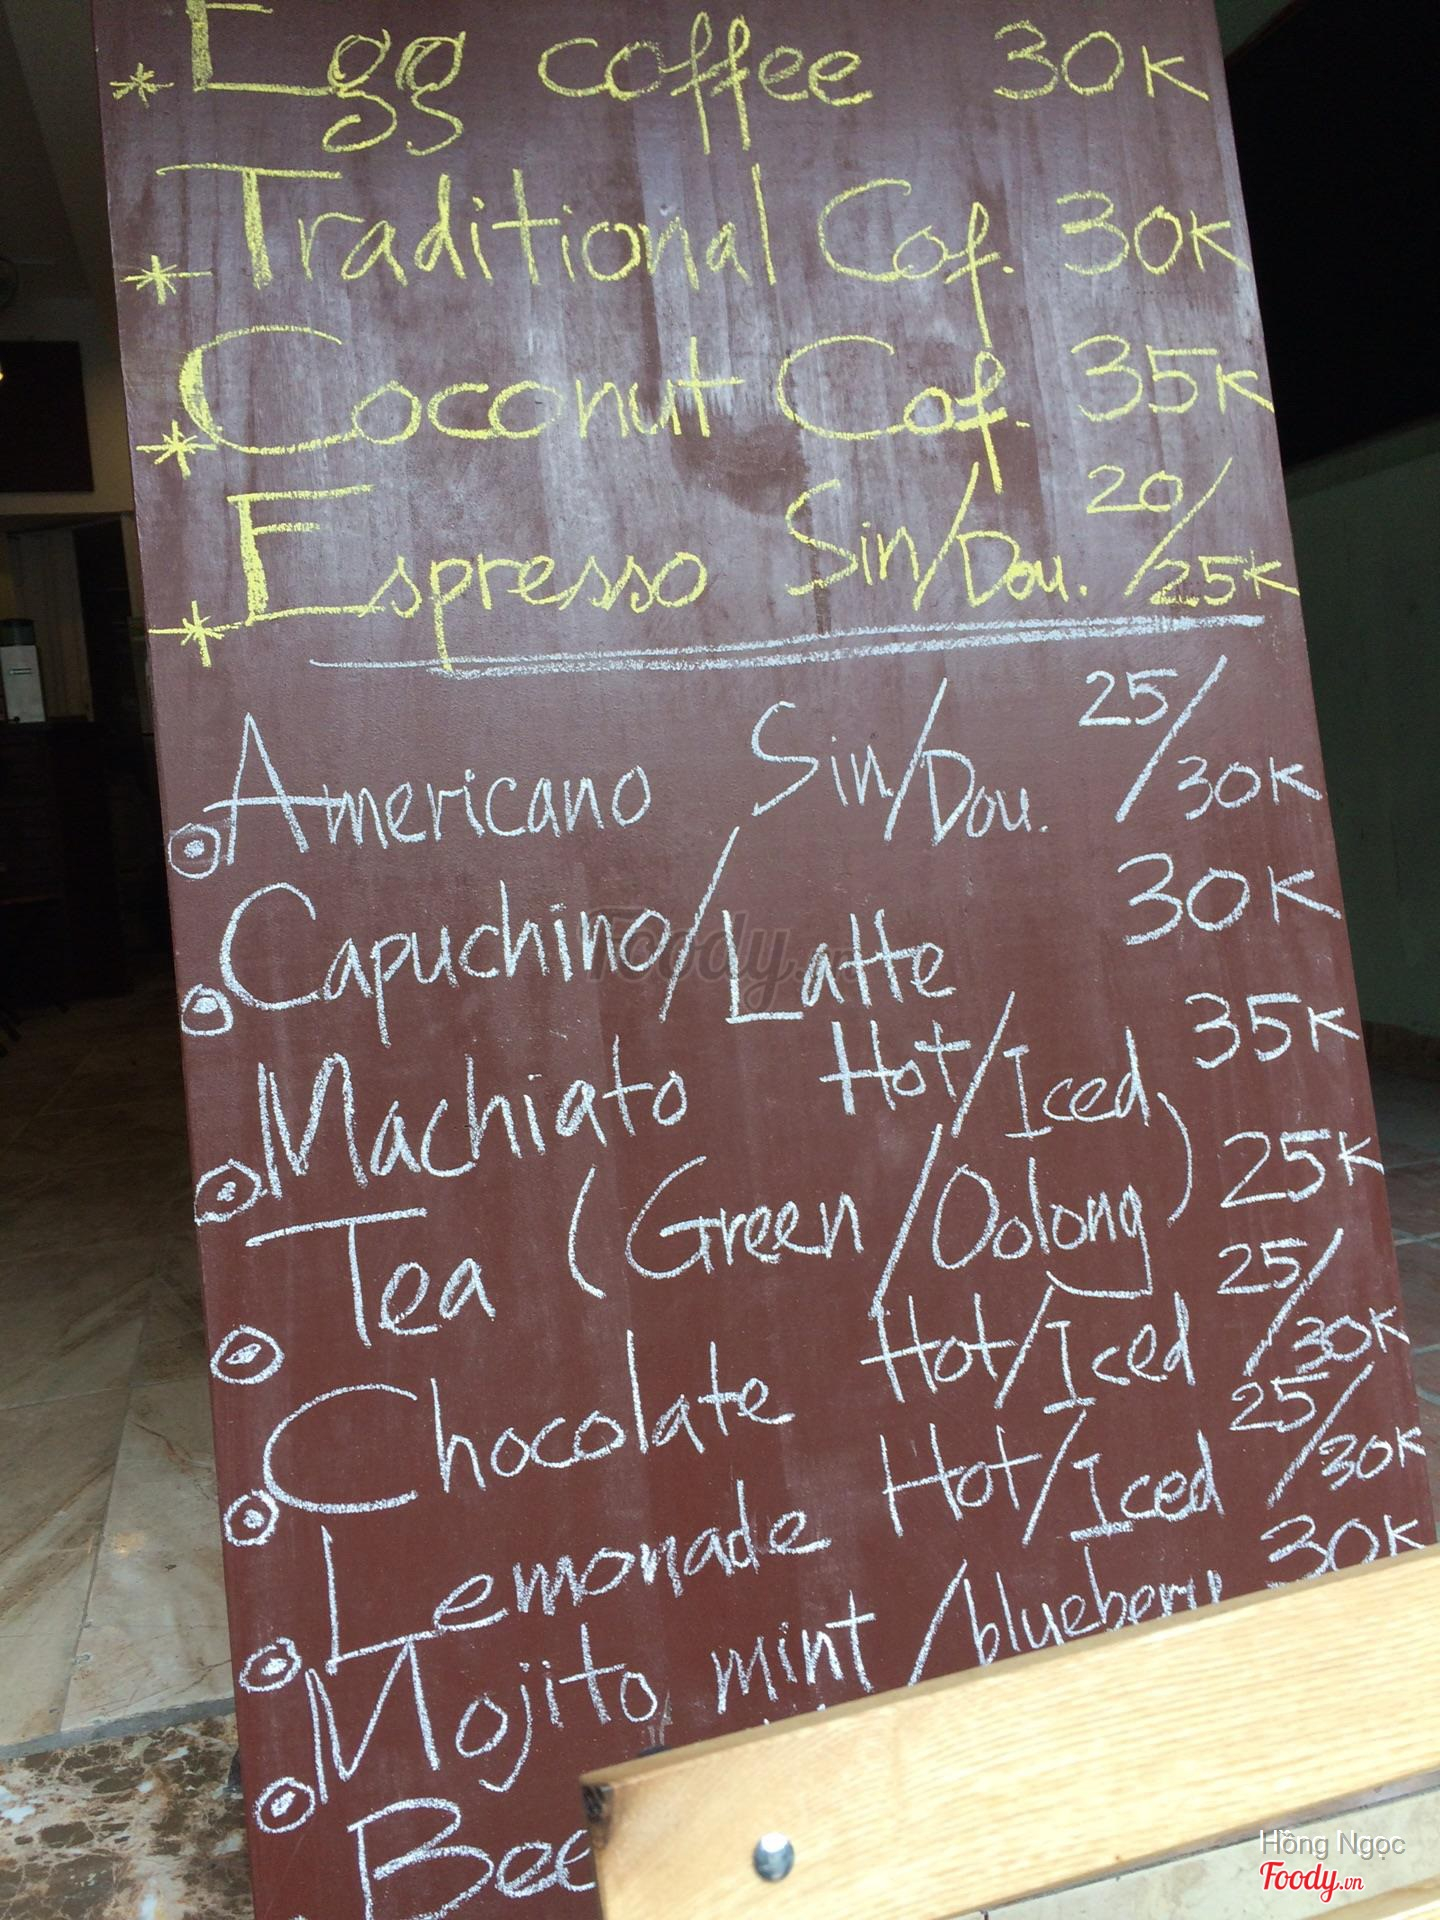 * Egg coffee 30K
* Traditional Cof. 30K
* Coconut Cof. 35K
* Espresso Sin/Dou. 20/25K
Americano Sin/Dou. 25/30K
Capuchino/Latte 30K
Machiato Hot/Iced 35K
Tea (Green/Oolong) 25K
Chocolate Hot/Iced 25/30K
Lemonade Hot/Iced 25/30K
Mojito mint/bluebery 30K
Foody.vn
Hồng Ngọc
Foody.vn